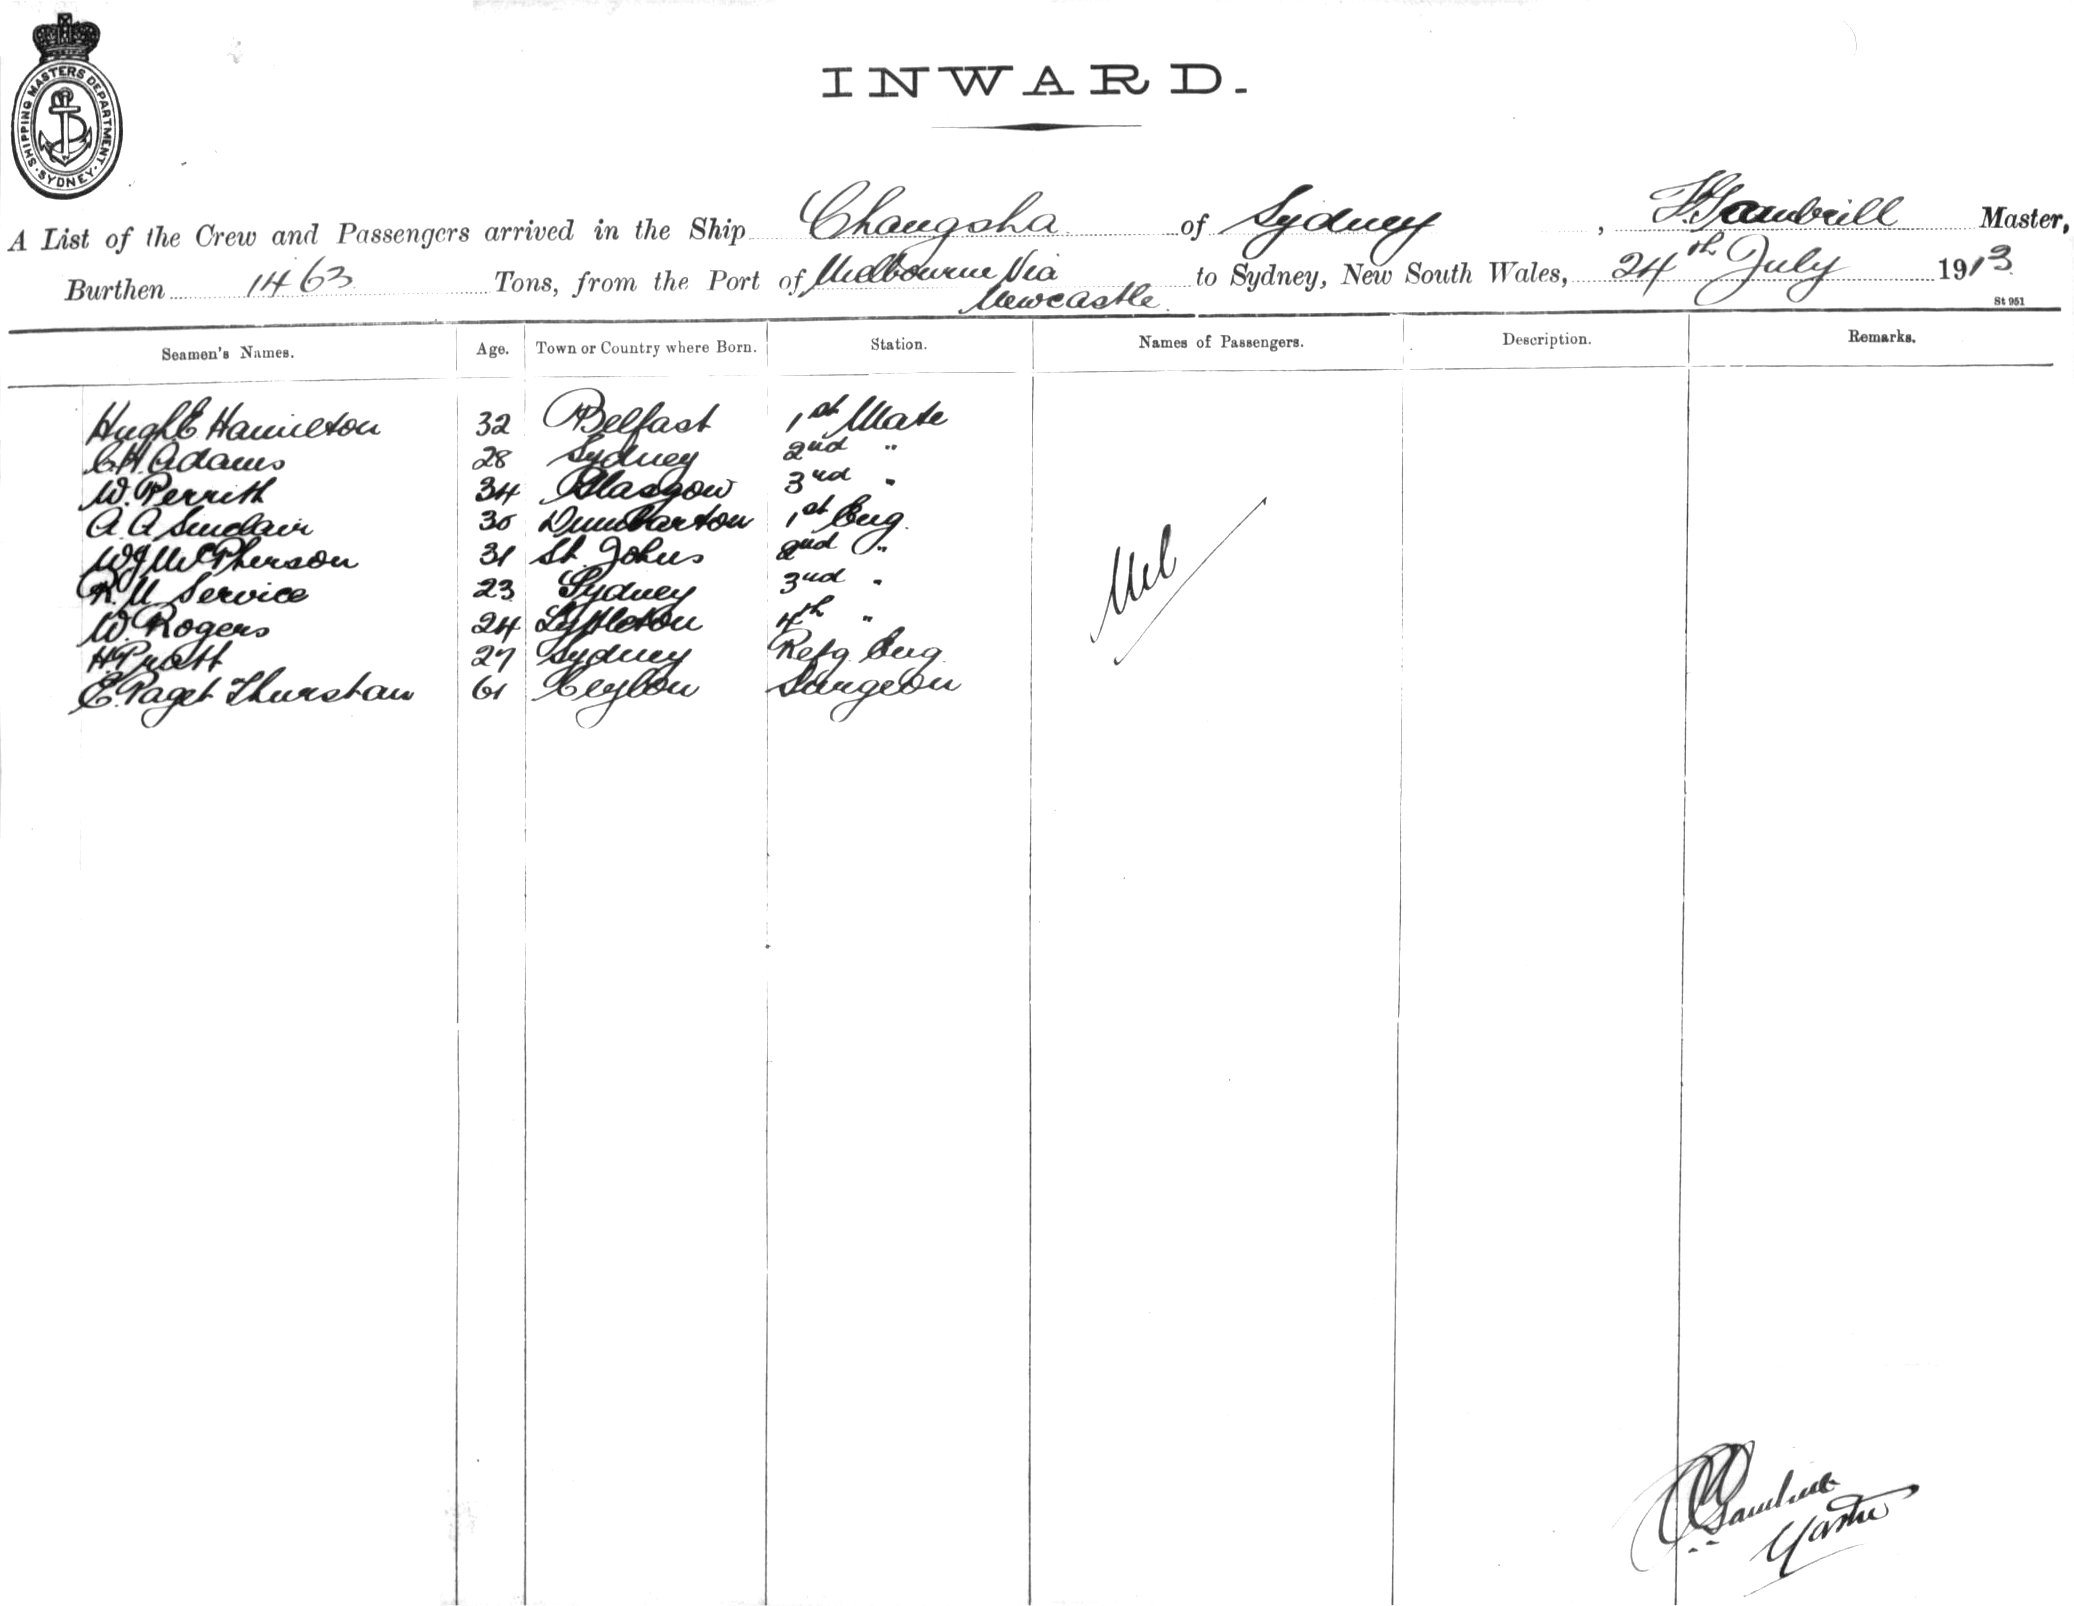 SHIPPING MASTERS DEPARTMENT. SYDNEY.
INWARD.
A List of the Crew and Passengers arrived in the Ship Changsha of Sydney, F. Gambrill Master,
Burthen 1463 Tons, from the Port of Melbourne Via Newcastle to Sydney, New South Wales, 24th July 1913
St 951
Seamen's Names. Age. Town or Country where Born. Station. Names of Passengers. Description. Remarks.
Hugh E Hamilton 32 Belfast 1st Mate
C H Adams 28 Sydney 2nd "
W. Perrith 34 Glasgow 3rd "
A A Sinclair 30 Dumbarton 1st Eng.
W J McPherson 31 St. Johns 2nd "
R. M Service 23 Sydney 3rd "
W. Rogers 24 Lyttleton 4th "
H Pratt 27 Sydney Refg Eng
E. Paget Thurstan 61 Ceylon Surgeon
Nil
Gambrill
Master